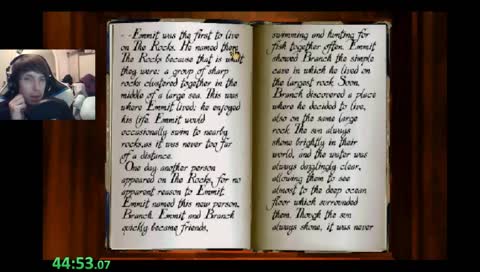 --Emmit was the first to live
on The Rocks. He named them
The Rocks because that is what
they were: a group of sharp
rocks clustered together in the
middle of a large sea. This was
where Emmit lived; he enjoyed
his life. Emmit would
occasionally swim to nearby
rocks, as it was never too far
of a distance.
One day another person
appeared on The Rocks, for no
apparent reason to Emmit.
Emmit named this new person,
Branch. Emmit and Branch
quickly became friends,
swimming and hunting for
fish together often. Emmit
showed Branch the simple
cave in which he lived on
the largest rock. Soon,
Branch discovered a place
where he decided to live,
also on the same large
rock. The sun always
shone brightly in their
world, and the water was
always dazzlingly clear,
allowing them to see
almost to the deep ocean
floor which surrounded
them. Though the sun
always shone, it was never
44:53.07